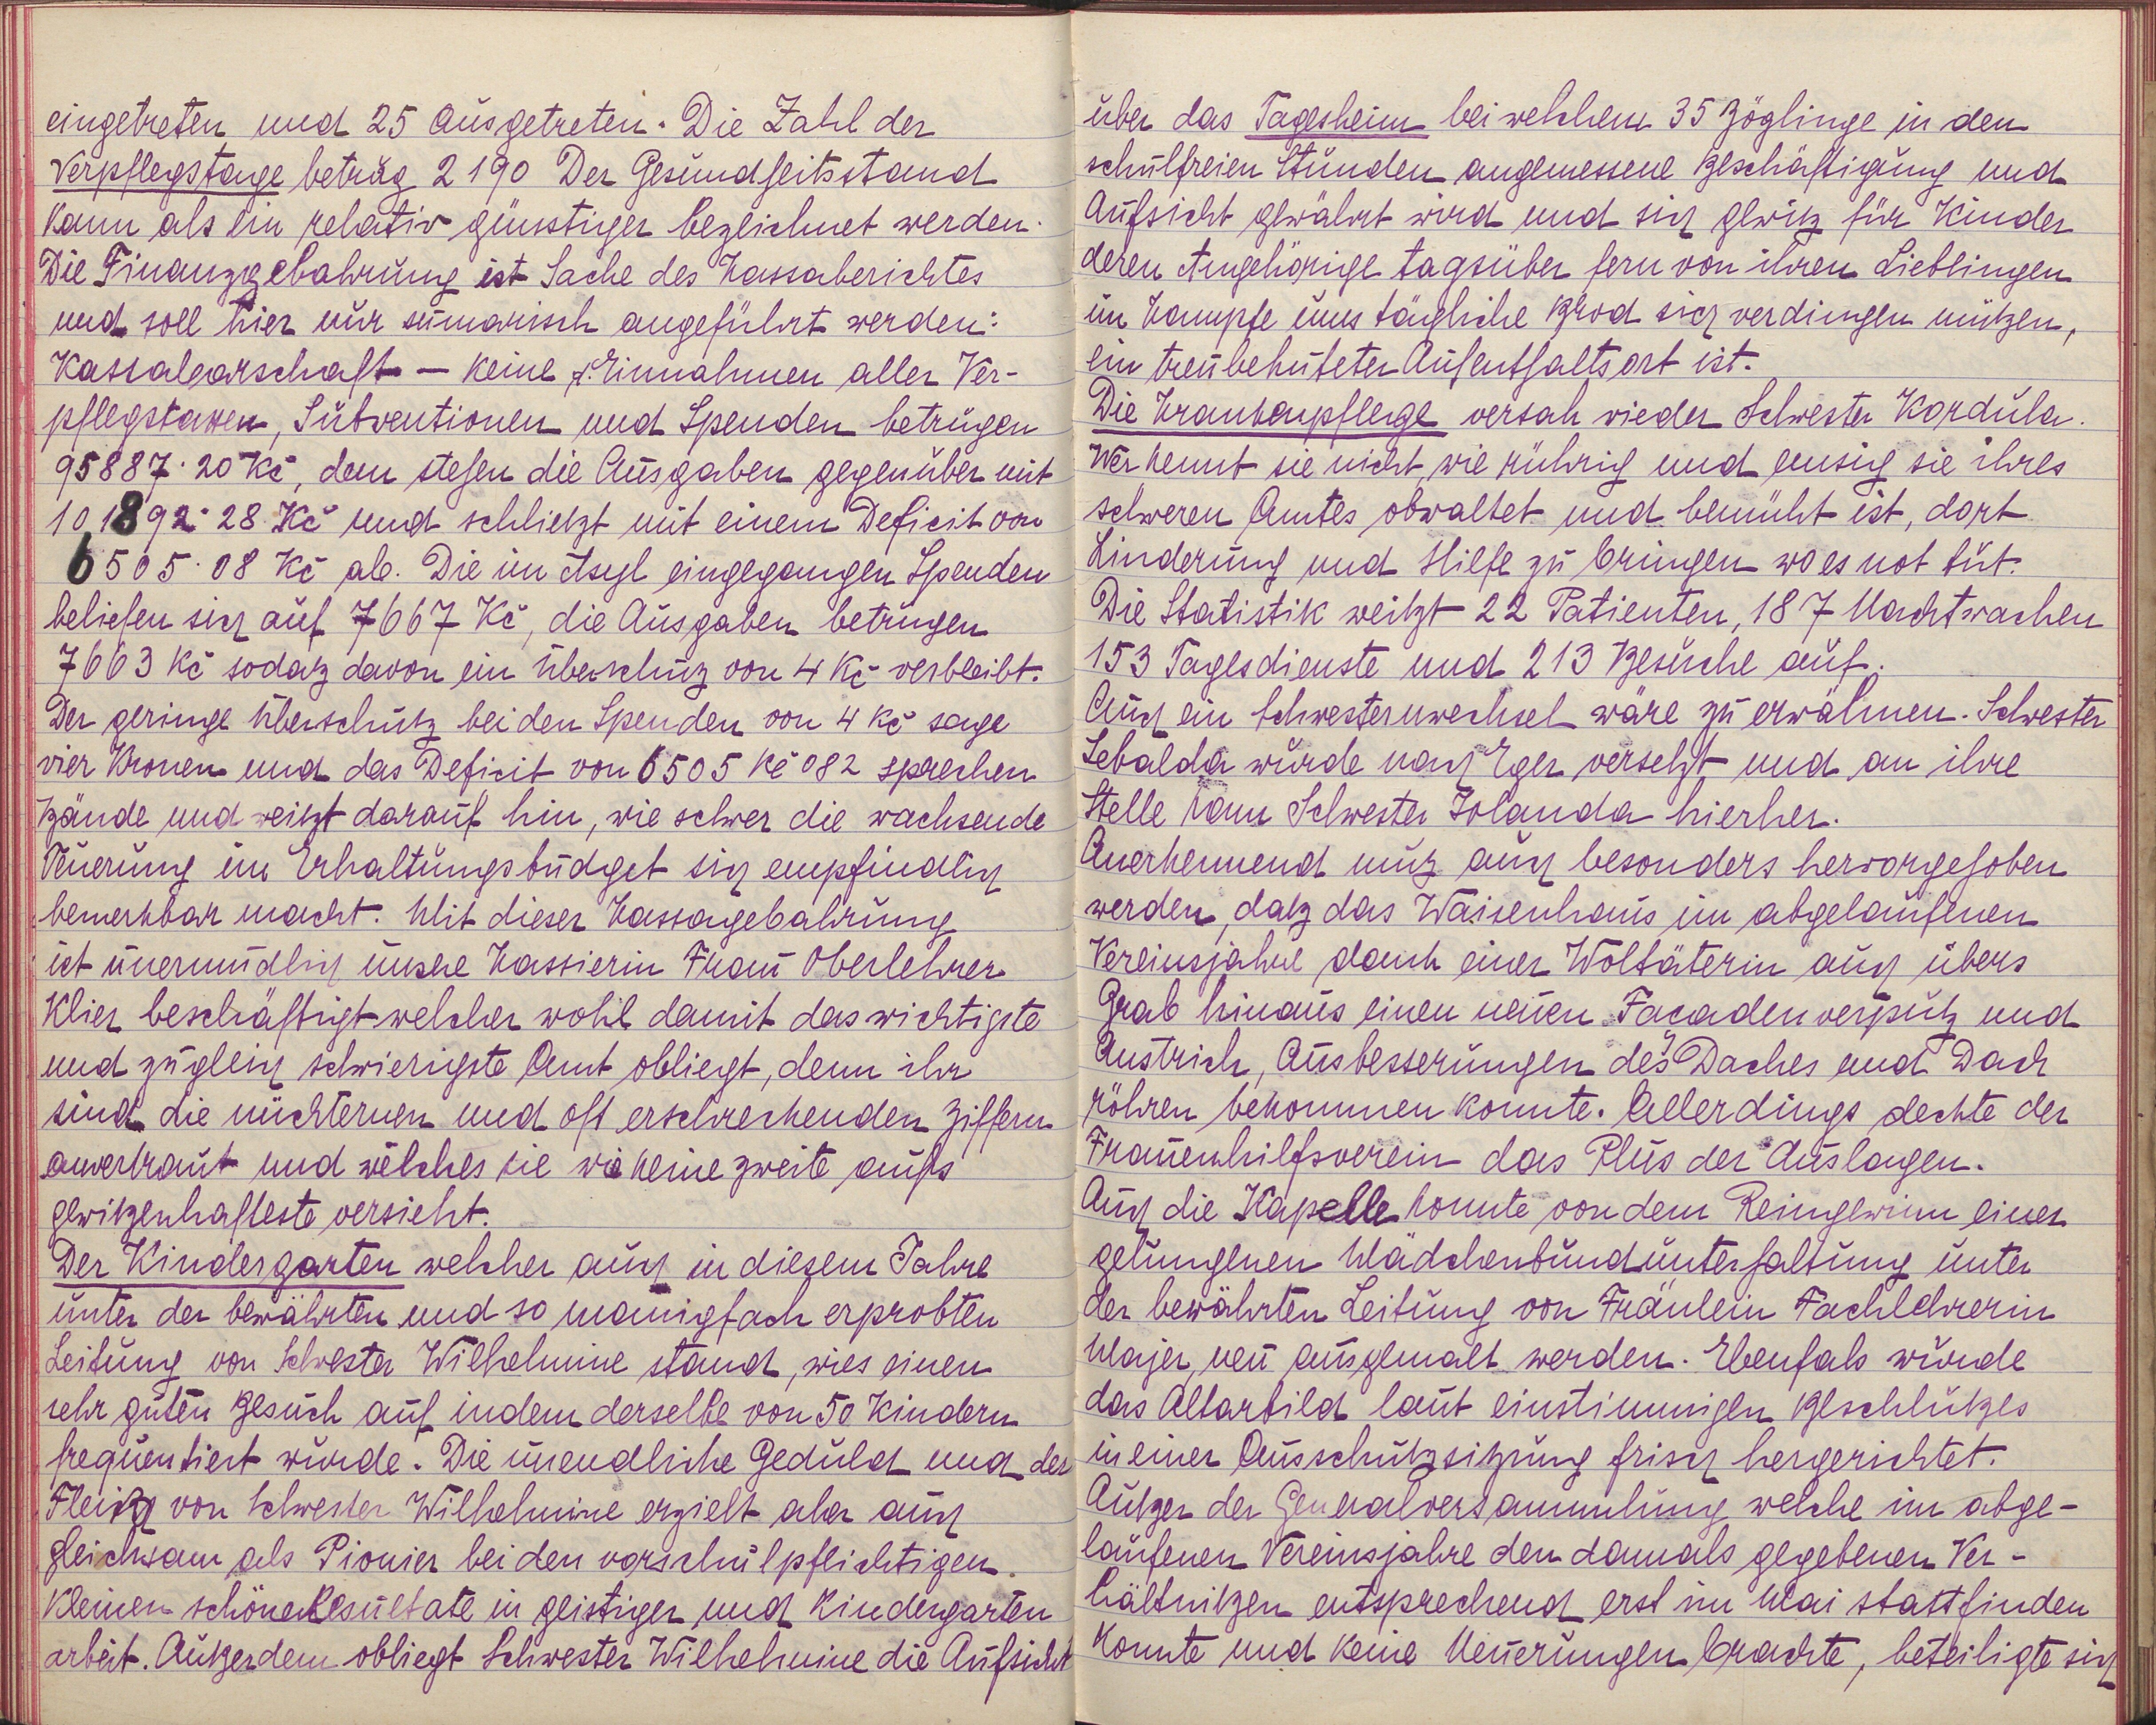 eingetreten und 25 ausgetreten. Die Zahl der
Verpflegstage betrug 2190 Der Gesundheitsstand
kann als ein relativ günstiger bezeichnet werden.
Die Finanzgebahrung ist Sache des Kassaberichtes
und soll hier nur sumarisch angeführt werden:
Kassabarschaft – keine, Einnahmen aller Ver-
pflegstaxen, Subventionen und Spenden betrugen
95887·20 Kč, dem stehen die Ausgaben gegenüber mit
101892·28 Kč und schließt mit einem Deficit von
6505·08 Kč ab. Die im Asyl eingegangen Spenden
beliefen sich auf 7667 Kč, die Ausgaben betrugen
7663 Kč sodaß davon ein Überschuß von 4 Kč verbleibt.
Der geringe Überschuß bei den Spenden von 4 Kč sage
vier Kronen und das Deficit von 6505 Kč 082 sprechen
Bände und weißt darauf hin, wie schwer die wachsende
Teuerung im Erhaltungsbudget sich empfindlich
bemerkbar macht. Mit dieser Kassagebahrung
ist unermüdlich unsere Kassierin Frau Oberlehrer
Klier beschäftigt welcher wohl damit das wichtigste
und zugleich schwierigste Amt obliegt, denn ihr
sind die nüchternen und oft erschreckenden Ziffern
anvertraut und welches sie wie keine zweite aufs
gewißenhafteste versieht.
Der Kindergarten welcher auch in diesem Jahre
unter der bewährten und so manigfach erprobten
Leitung von Schwester Wilhelmine stand, wies einen
sehr guten Besuch auf indem derselbe von 50 Kindern
frequentiert wurde. Die unendliche Geduld und der
Fleiß von Schwester Wilhelmine erzielt aber auch
gleichsam als Pionier bei den vorschulpflichtigen
Kleinen schöne Resultate in geistiger und Kindergarten
arbeit. Außerdem obliegt Schwester Wilhelmine die Aufsicht
über das Tagesheim bei welchem 35 Zöglinge in den
schulfreien Stunden angemessene Beschäftigung und
Aufsicht gewährt wird und sich gewiß für Kinder
deren Angehörige tagsüber fern von ihren Lieblingen
im Kampfe ums tägliche Brod sich verdingen müßen,
ein treubehuteter Aufenthaltsort ist.
Die Krankenpflege versah wieder Schwester Kordula.
Wer kennt sie nicht, wie rührig und emsig sie ihres
schweren Amtes obwaltet und bemüht ist, dort
Linderung und Hilfe zu bringen wo es not tut.
Die Statistik weißt 22 Patienten, 187 Nachtwachen
153 Tagesdienste und 213 Besuche auf.
Auch ein Schwesternwechsel wäre zu erwähnen. Schwester
Sebalda wurde nach Eger versetzt und an ihre
Stelle kam Schwester Jolanda hierher.
Anerkennend muß auch besonders hervorgehoben
werden, daß das Waisenhaus im abgelaufenen
Vereinsjahre dank einer Woltäterin auch übers
Grab hinaus einen neuen Facadenverputz und
Anstrich, Ausbesserungen des Daches und Dach
röhren bekommen konnte. Allerdings deckte der
Frauenhilfsverein das Plus der Auslagen.
Auch die Kapelle konnte von dem Reingewinn einer
gelungenen Mädchenbundunterhaltung unter
der bewährten Leitung von Fräulein Fachlehrerin
Majer, neu ausgemalt werden. Ebenfals wurde
das Altarbild laut einstimmigen Beschlußes
in einer Ausschußsitzung frisch hergerichtet.
Außer der Generalversammlung welche im abge-
laufenen Vereinsjahre den damals gegebenen Ver-
hältnißen entsprechend erst im Mai stattfinden
konnte und keine Neuerungen brachte, beteiligte sich